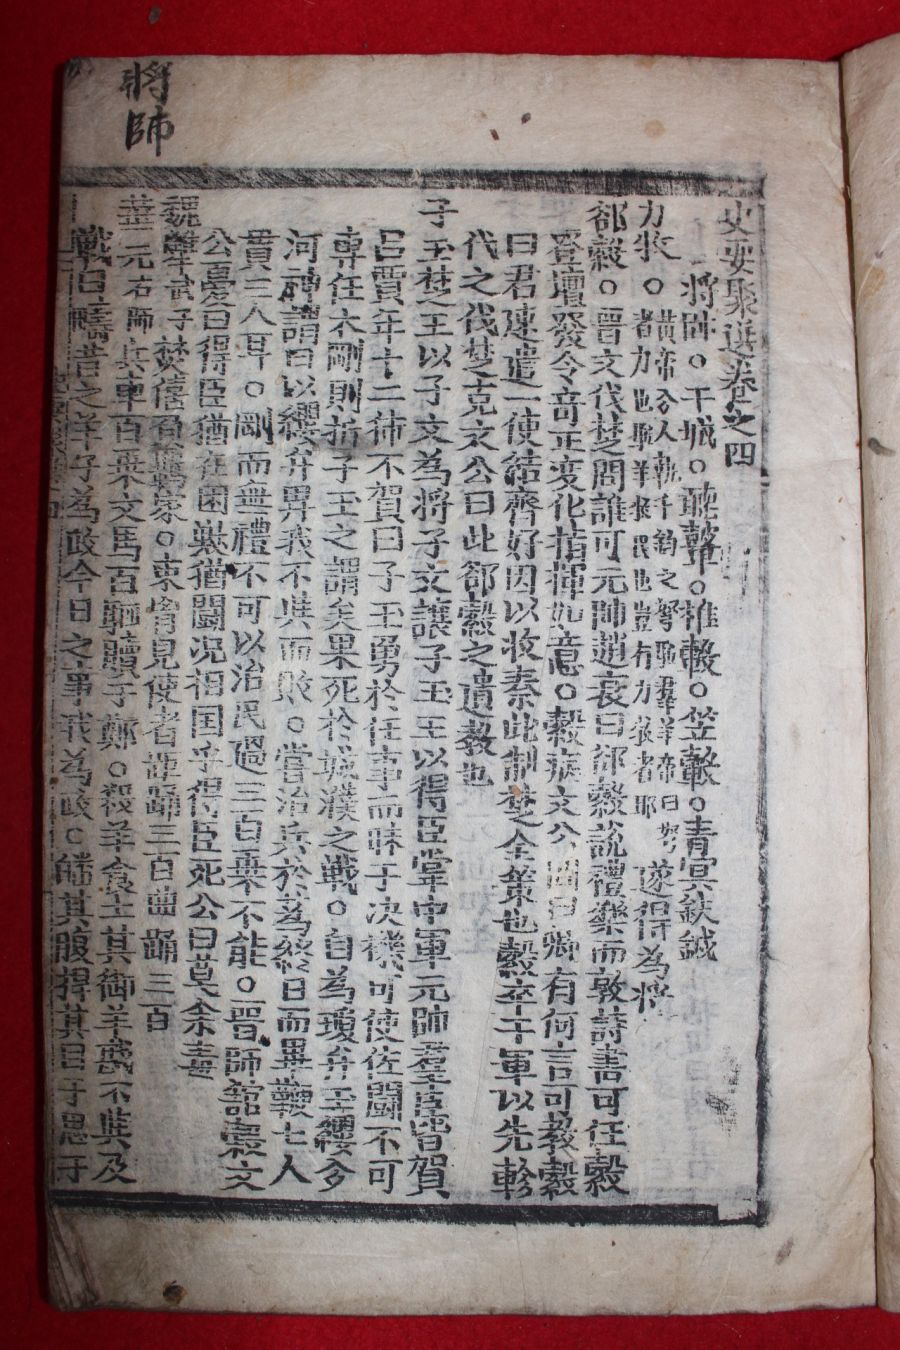 將帥
史要聚選卷之四
將帥○干城○聽鼙○推轂○笠轂○靑冥鈇鉞
力牧○黃帝夢人執千鈞之弩驅羣羊帝曰弩者力也驅羊牧民也豈有力牧者耶遂得爲將
郤縠○晋文伐楚問誰可元帥趙衰曰郤縠說禮樂而敦詩書可任縠
登壇發令奇正変化指揮如意○縠病文公問曰卿有何言可敎縠
曰君速遣一使結齊好因以收秦此制楚全策也縠卒于軍以先軫
代之伐楚克文公曰此郤縠之遺敎也
子玉楚王以子文爲將子文讓子玉王以得臣掌中軍元帥羣臣皆賀
呂賈年十二弟不賀曰子玉勇於任事而昧于决機可使佐鬪不可
專任太剛則折子玉之謂矣果死於城濮之戰○自爲瓊弁玉纓夢
河神謂曰以纓弁畀我不與而敗○嘗治兵於蔿終日而畢鞭七人
貫三人耳○剛而無禮不可以治民過三百乘不能○晋師舘穀文
公憂曰得臣猶在困獸猶鬪况相国乎得臣死公曰莫余毒
魏犨武子焚僖負羈家○束胷見使者距踊三百曲踊三百
華元右師兵車百乘文馬百駟贖于鄭○殺羊食士其御羊斟不與及
戰曰疇昔之羊子爲政今日之事我爲政○皤其腹睅其目于思于